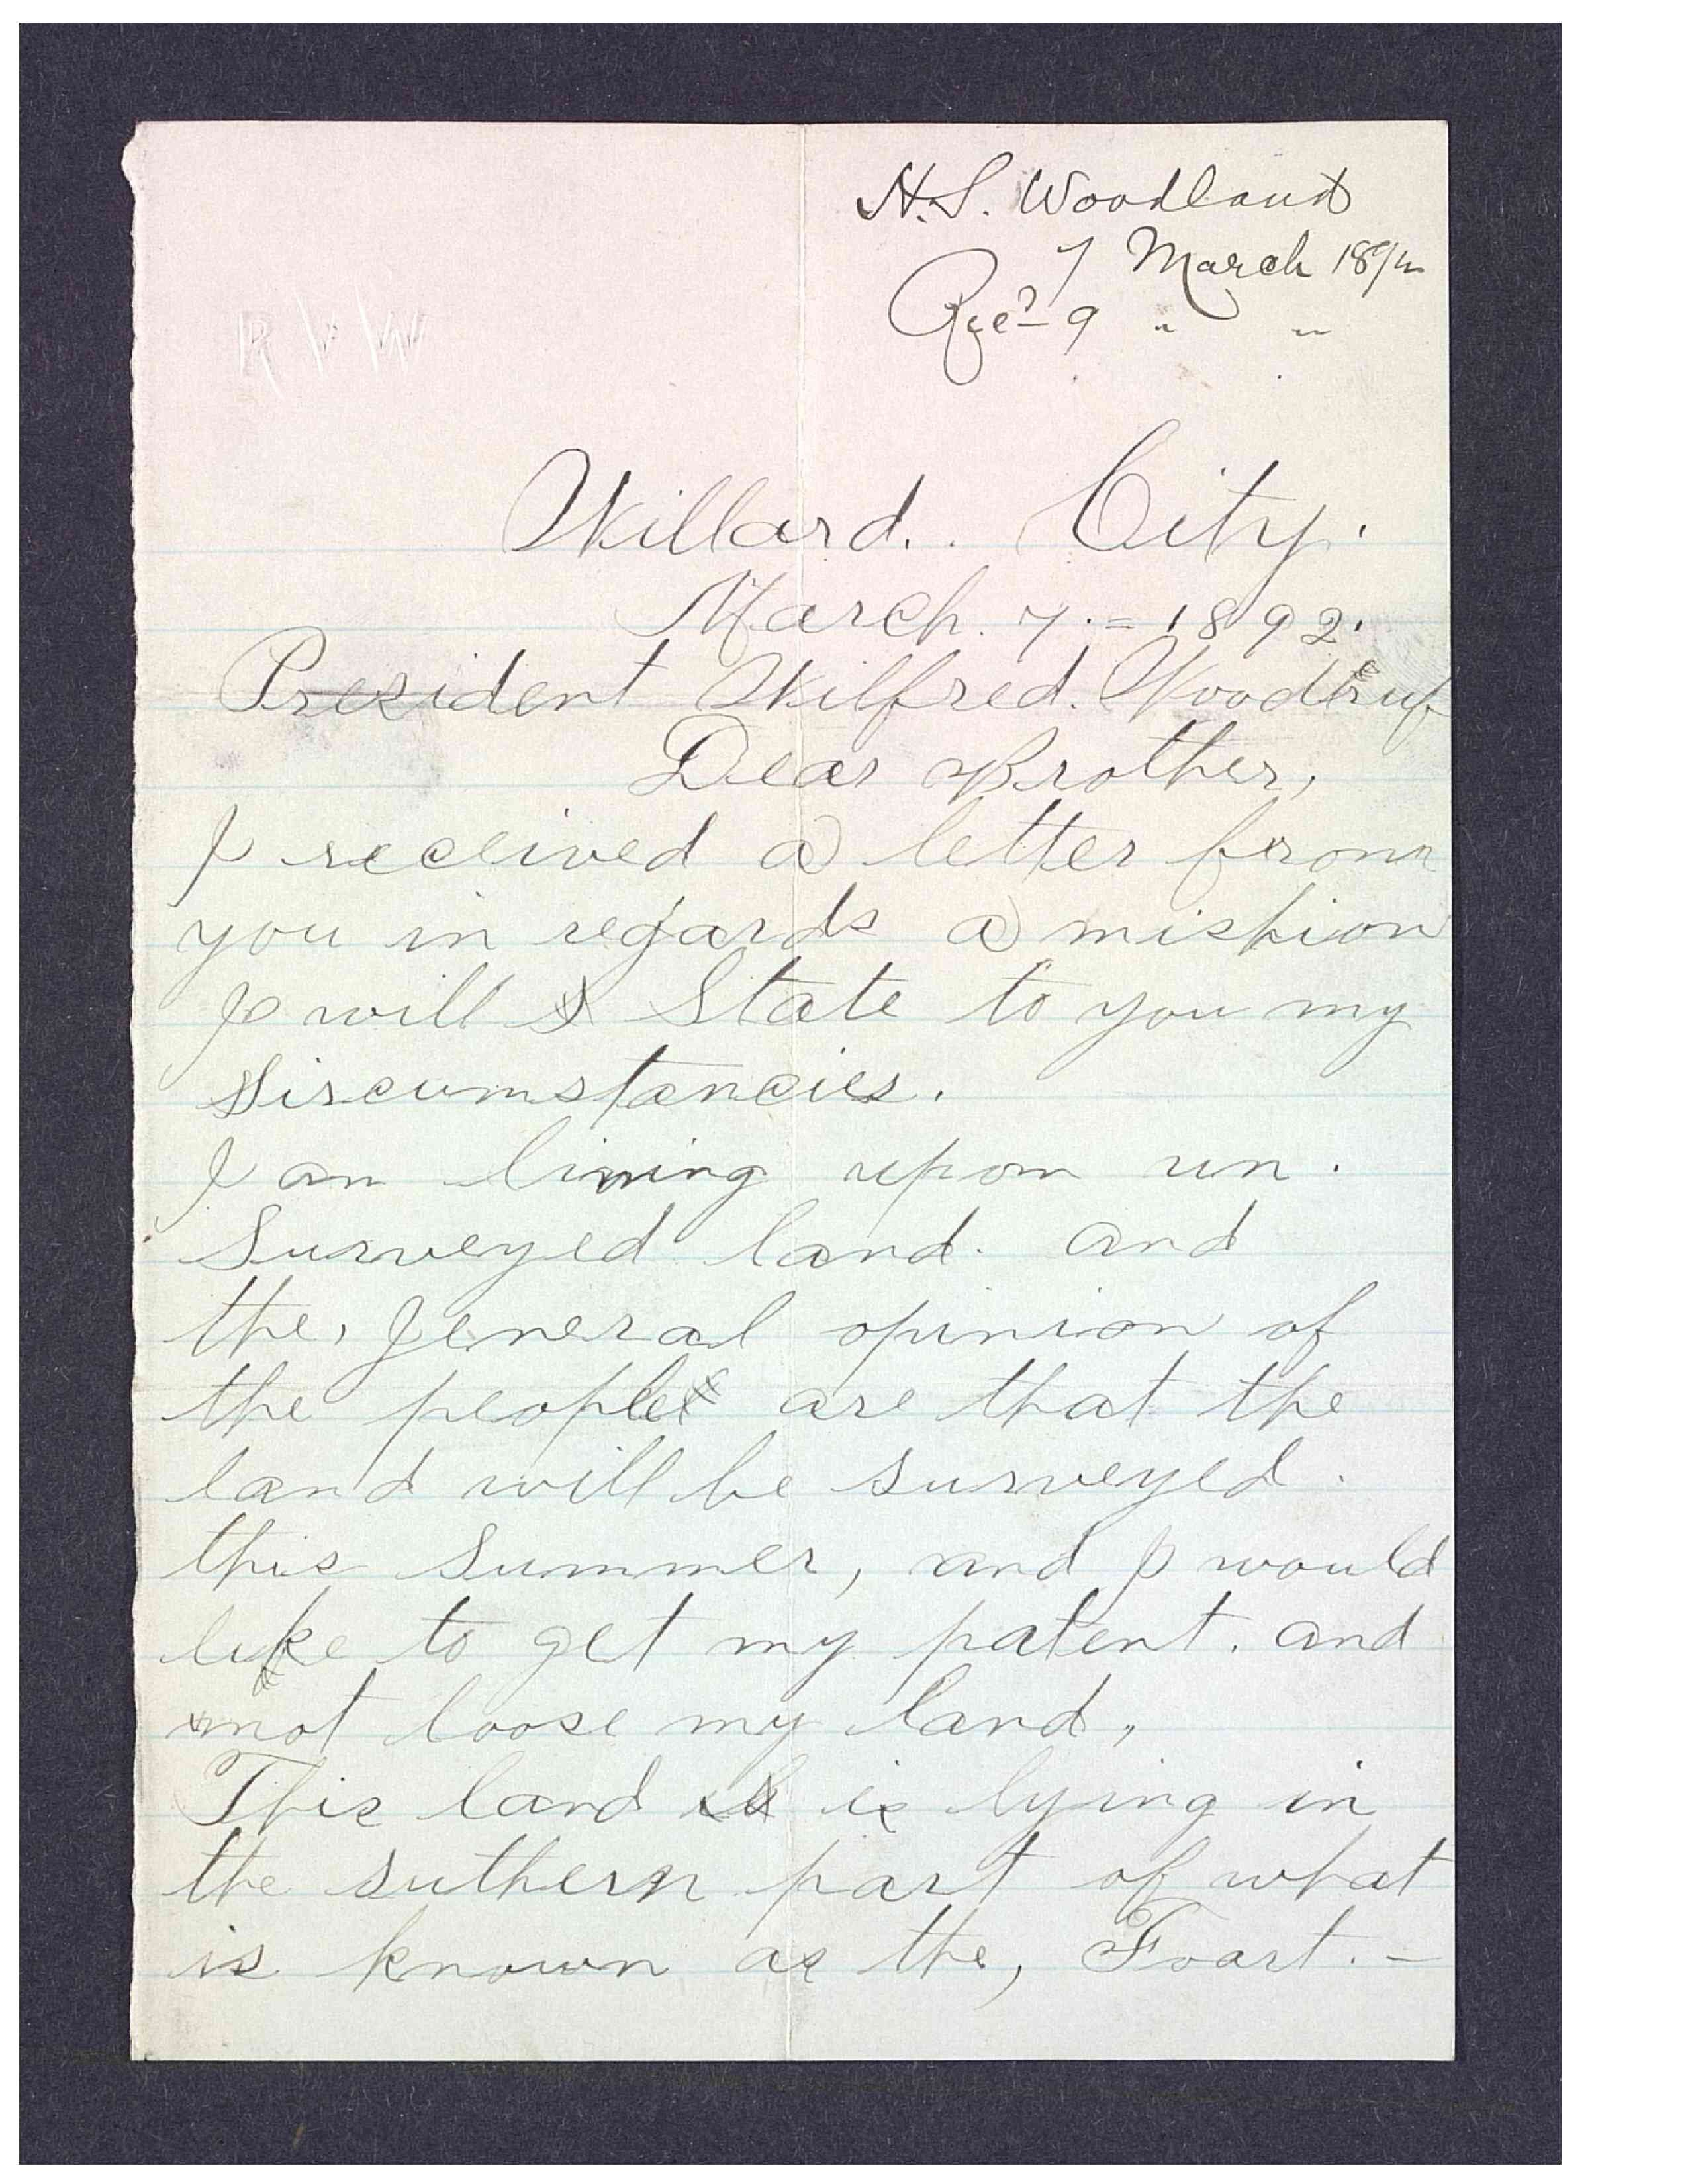 H.S. Woodland
7 March 1892
Recd 9 " "
R V W
Willard.. City.
March. 7.=1892.
President Wilfred. Woodruf
Dear Brother,
I received a letter from
you in regards a mission
I will State to you my
sircumstancies.
I am living upon un.
Surveyed land. and
the, General opinion of
the people are that the
land will be surveyed.
this summer, and I would
like to get my patent. and
not loose my land,
This land is lying in
the suthern part of what
is known as the, Foart.-